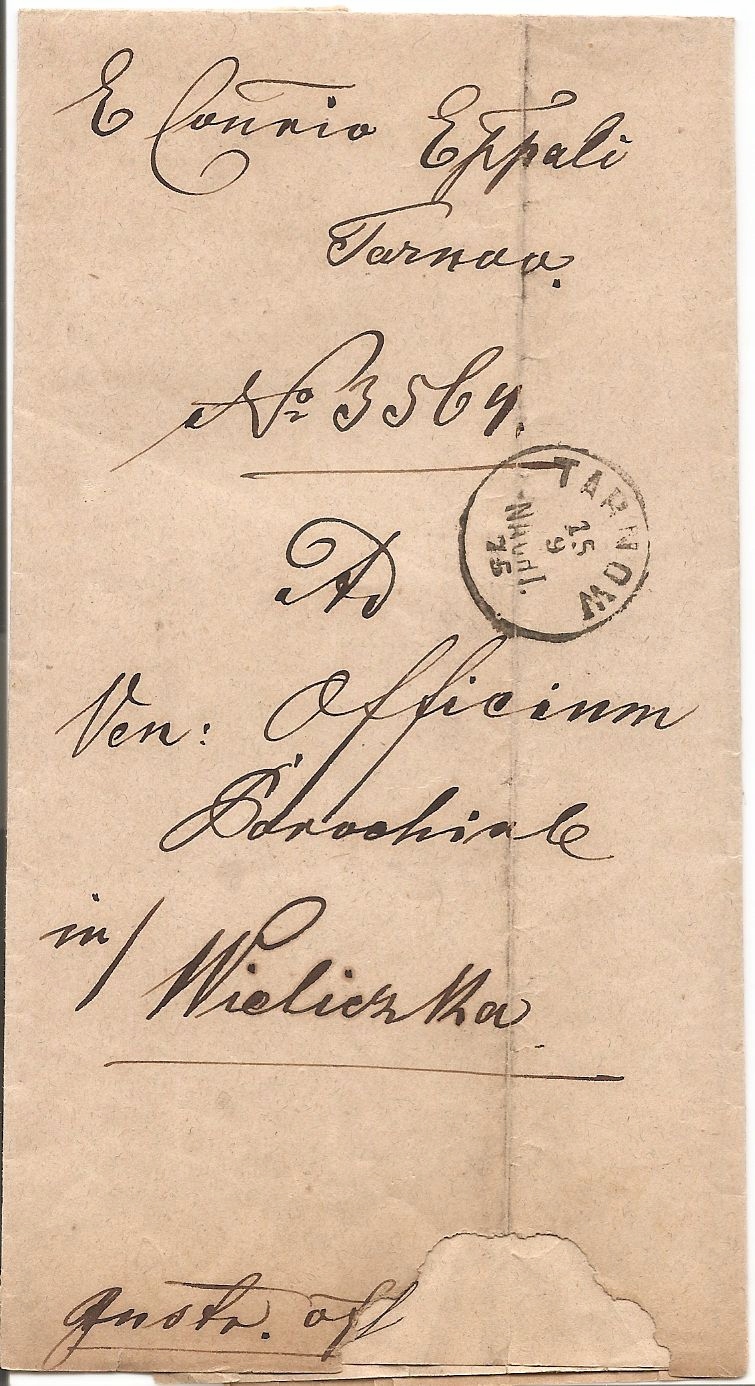 E Conrio Eppali
Tarnov.
No 3564.
TARNOW
15
9
75
Nachl.
Ad
Ven: Officium
Parochiale
in/ Wieliczka
off